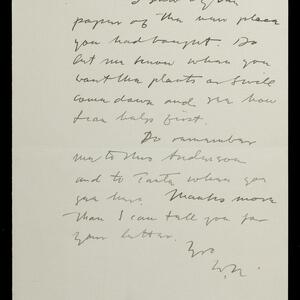 paper of the new place
you had bought. Do
let me know when you
want the plants or I will
come down and see how
I can help first.
Do remember
me to Mrs Anderson
and to Tante when you
Thanks more
than I can tell you for
your letter.
Yrs